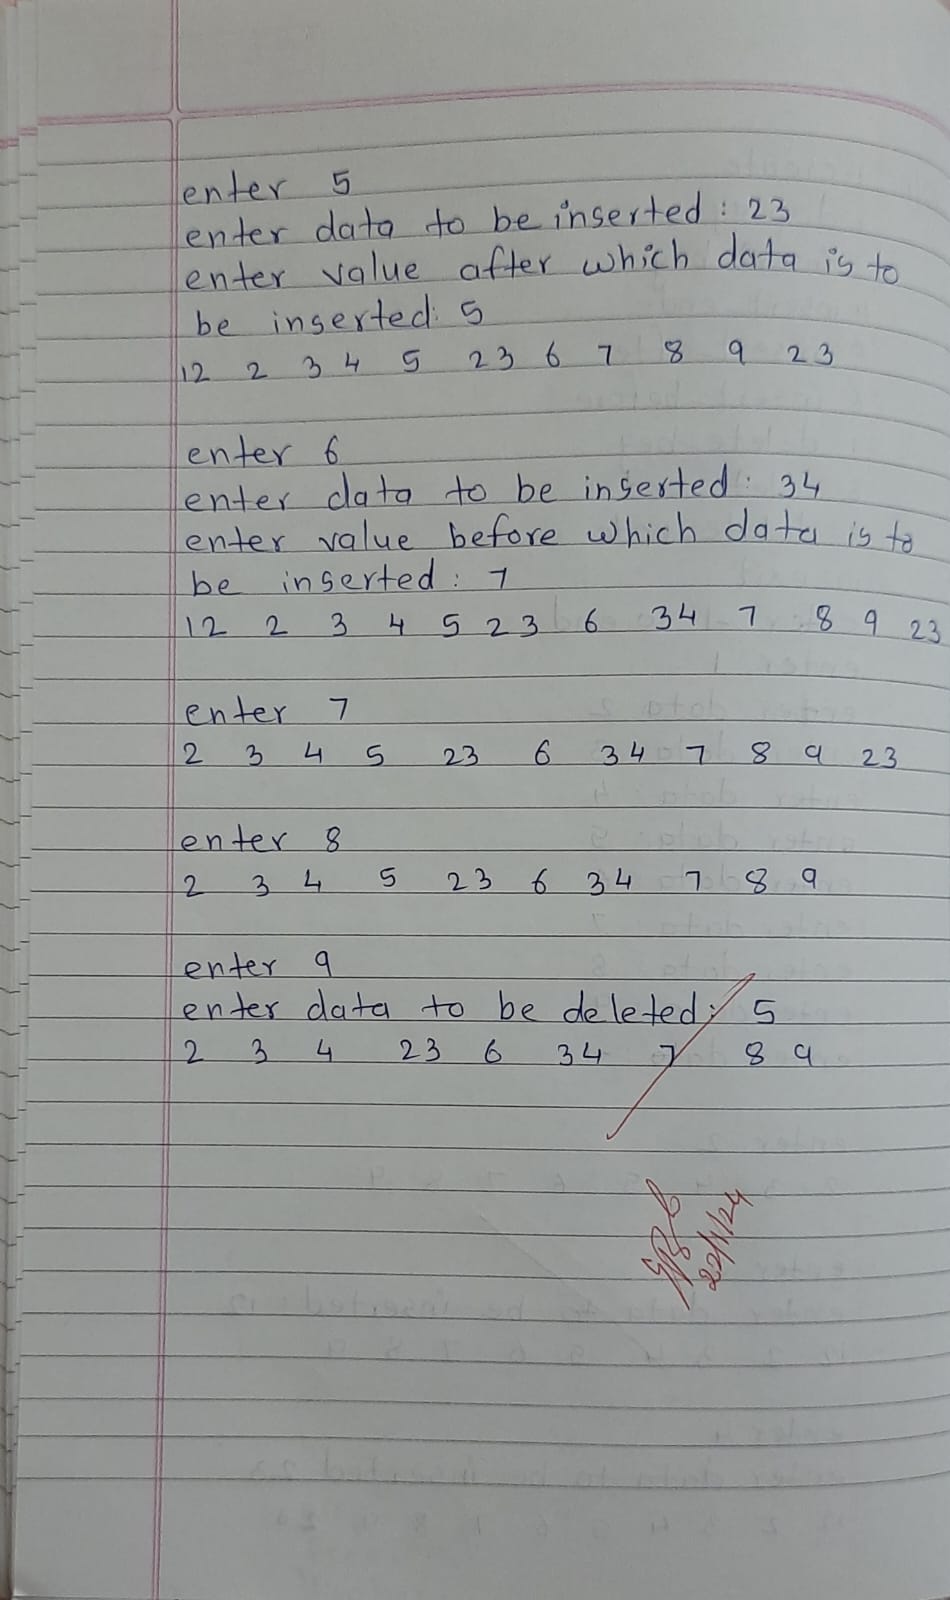 enter 5
enter data to be inserted : 23
enter value after which data is to
be inserted: 5
12 2 3 4 5 23 6 7 8 9 23
enter 6
enter data to be inserted : 34
enter value before which data is to
be inserted : 7
12 2 3 4 5 23 6 34 7 8 9 23
enter 7
2 3 4 5 23 6 34 7 8 9 23
enter 8
2 3 4 5 23 6 34 7 8 9
enter 9
enter data to be deleted: 5
2 3 4 23 6 34 7 8 9
22/1/24